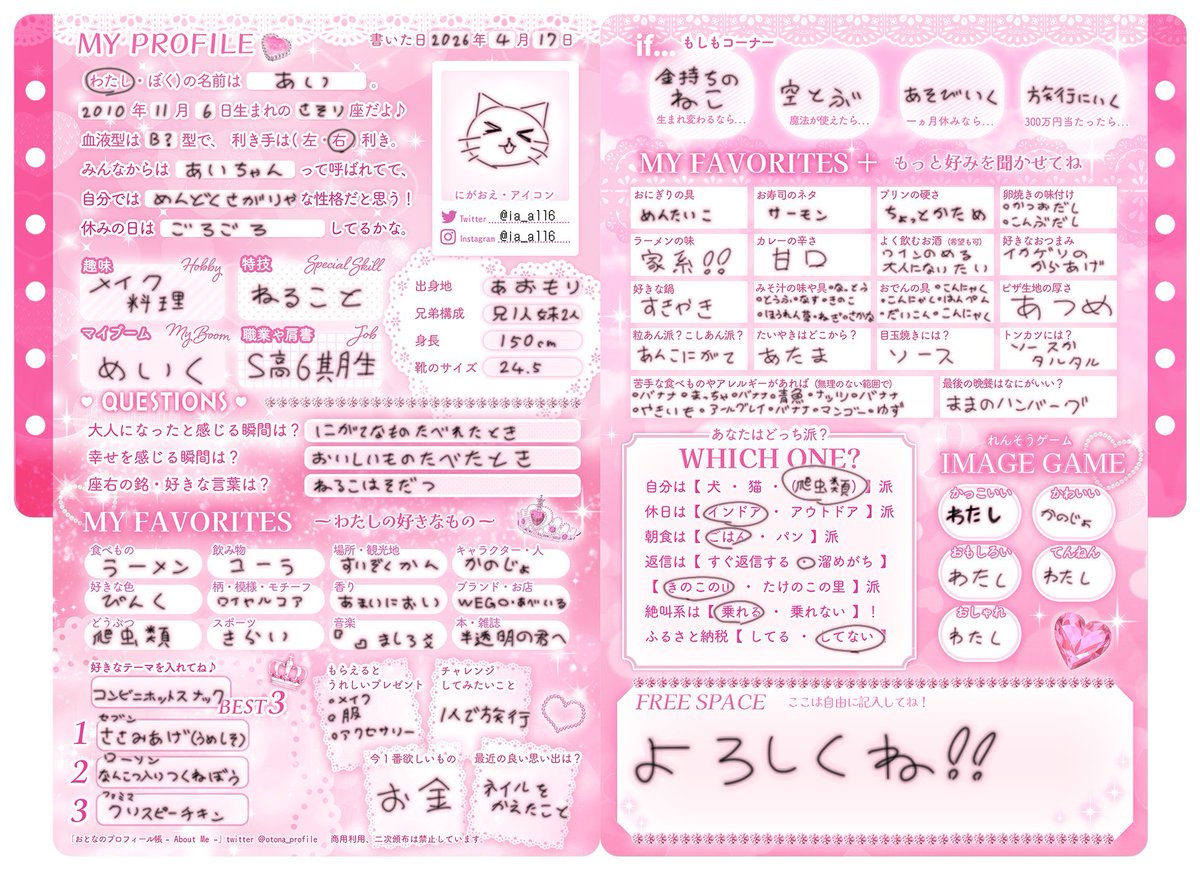 MY PROFILE
書いた日 2026年 4月 17日
(わたし・ぼく)の名前は あい 。
2010年 11月 6日生まれの さそり 座だよ♪
血液型は B? 型で、 利き手は(左・右)利き。
みんなからは あいちゃん って呼ばれてて、
自分では めんどくさがりや な性格だと思う！
休みの日は ごろごろ してるかな。
にがおえ・アイコン
Twitter @ia_a116
Instagram @ia_a116
趣味 Hobby
メイク
料理
特技 Special Skill
ねること
マイブーム My Boom
めいく
職業や肩書 Job
S高6期生
出身地 あおもり
兄弟構成 兄1人妹2人
身長 150cm
靴のサイズ 24.5
QUESTIONS
大人になったと感じる瞬間は？ にがてなものたべれたとき
幸せを感じる瞬間は？ おいしいものたべたとき
座右の銘・好きな言葉は？ ねるこはそだつ
MY FAVORITES ～わたしの好きなもの～
食べもの ラーメン
飲み物 コーラ
場所・観光地 すいぞくかん
キャラクター・人 かのじょ
好きな色 ぴんく
柄・模様・モチーフ ロイヤルコア
香り あまいにおい
ブランド・お店 WEGO・あべいる
どうぶつ 爬虫類
スポーツ きらい
音楽 ましろ
本・雑誌 半透明の君へ
好きなテーマを入れてね♪
コンビニホットスナック
BEST3
1 セブン
ささみあげ(うめしそ)
2 ローソン
なんこつ入りつくねぼう
3 ファミマ
クリスピーチキン
もらえると
うれしいプレゼント
・メイク
・服
・アクセサリー
チャレンジ
してみたいこと
1人で旅行
今1番欲しいもの
お金
最近の良い思い出は？
ネイルを
かえたこと
「おとなのプロフィール帳 - About Me -」twitter @otona_profile 商用利用、二次頒布は禁止しています。
if... もしもコーナー
金持ちの
ねこ
生まれ変わるなら…
空とぶ
魔法が使えたら…
あそびいく
一ヵ月休みなら…
旅行にいく
300万円当たったら…
MY FAVORITES＋ もっと好みを聞かせてね
おにぎりの具
めんたいこ
お寿司のネタ
サーモン
プリンの硬さ
ちょっとかため
卵焼きの味付け
・かつおだし
・こんぶだし
ラーメンの味
家系!!
カレーの辛さ
甘口
よく飲むお酒 (希望も可)
ワインのめる
大人になりたい
好きなおつまみ
イカゲソの
からあげ
好きな鍋
すきやき
みそ汁の味や具・なっとう
・とうふ・なす・きのこ
・ほうれん草・ねぎ・さかな
おでんの具・こんにゃく
・こんにゃく・はんぺん
・だいこん・こんにゃく
ピザ生地の厚さ
あつめ
粒あん派？こしあん派？
あんこにがて
たいやきはどこから？
あたま
目玉焼きには？
ソース
トンカツには？
ソースか
タルタル
苦手な食べものやアレルギーがあれば (無理のない範囲で)
・バナナ・まっちゃ・バナナ・青魚・ナッツ・バナナ
・やきいも・アールグレイ・バナナ・マンゴー・ゆず
最後の晩餐はなにがいい？
ままのハンバーグ
あなたはどっち派？
WHICH ONE?
自分は【 犬 ・ 猫 ・ (爬虫類) 】派
休日は【 インドア ・ アウトドア 】派
朝食は【 ごはん ・ パン 】派
返信は【 すぐ返信する ・ 溜めがち 】
【 きのこの山 ・ たけのこの里 】派
絶叫系は【 乗れる ・ 乗れない 】！
ふるさと納税【 してる ・ してない 】
れんそうゲーム
IMAGE GAME
かっこいい
わたし
かわいい
かのじょ
おもしろい
わたし
てんねん
わたし
おしゃれ
わたし
FREE SPACE ここは自由に記入してね！
よろしくね!!